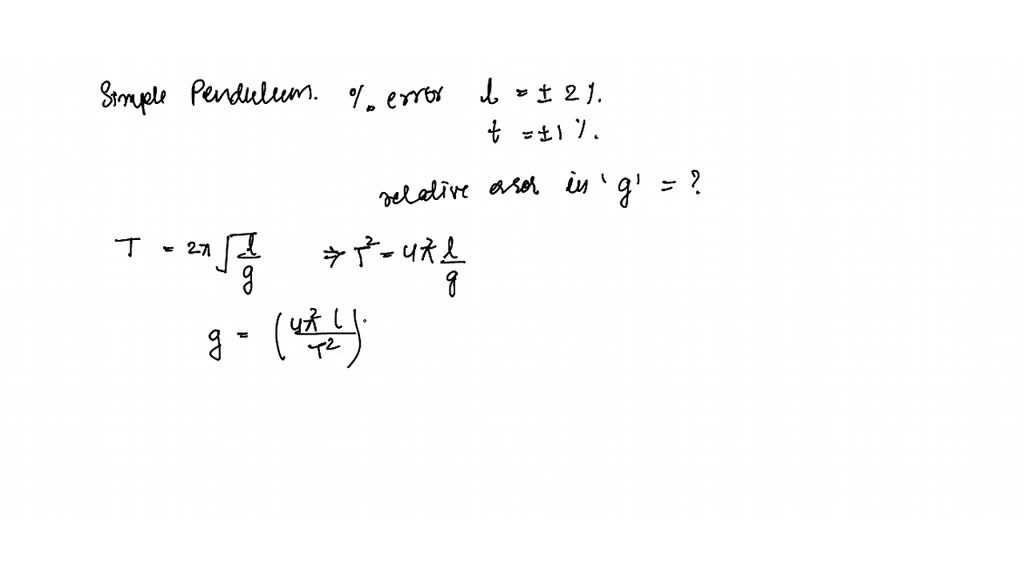 Simple Pendulum. %. error l = ± 2 %.
t = ± 1 %.
relative error in 'g' = ?
T = 2π √(l/g) ⇒ T² = 4π² l/g
g = (4π² l / T²).